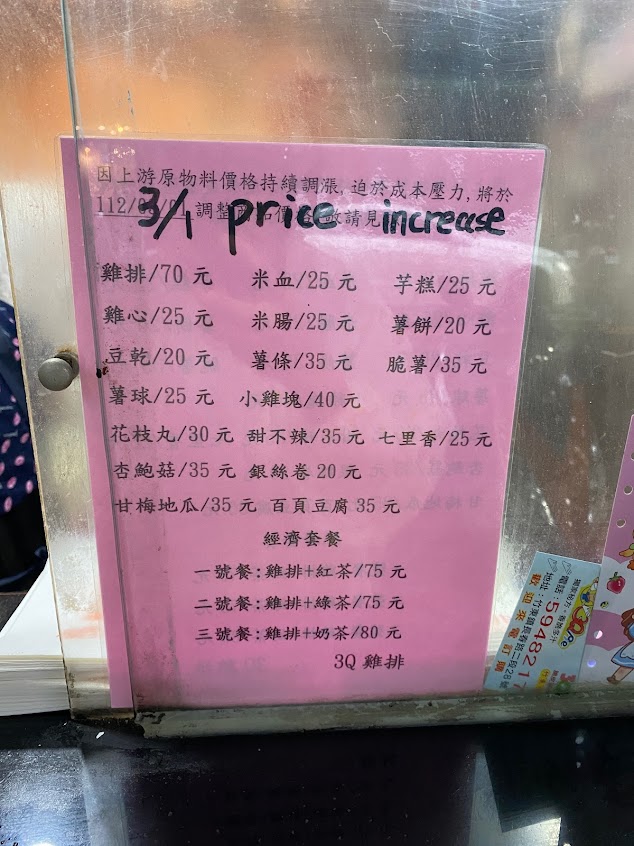 因上游原物料價格持續調漲,迫於成本壓力,將於
112/ 調整 價 敬請見
3/1 price increase
雞排/70 元 米血/25 元 芋糕/25 元
雞心/25 元 米腸/25 元 薯餅/20 元
豆乾/20 元 薯條/35 元 脆薯/35 元
薯球/25 元 小雞塊/40 元
花枝丸/30 元 甜不辣/35 元 七里香/25 元
杏鮑菇/35 元 銀絲卷 20 元
甘梅地瓜/35 元 百頁豆腐 35 元
經濟套餐
一號餐:雞排+紅茶/75 元
二號餐:雞排+綠茶/75 元
三號餐:雞排+奶茶/80 元
3Q 雞排
電話:594821
地址:竹東鎮長春路二段28號
歡迎來電訂購